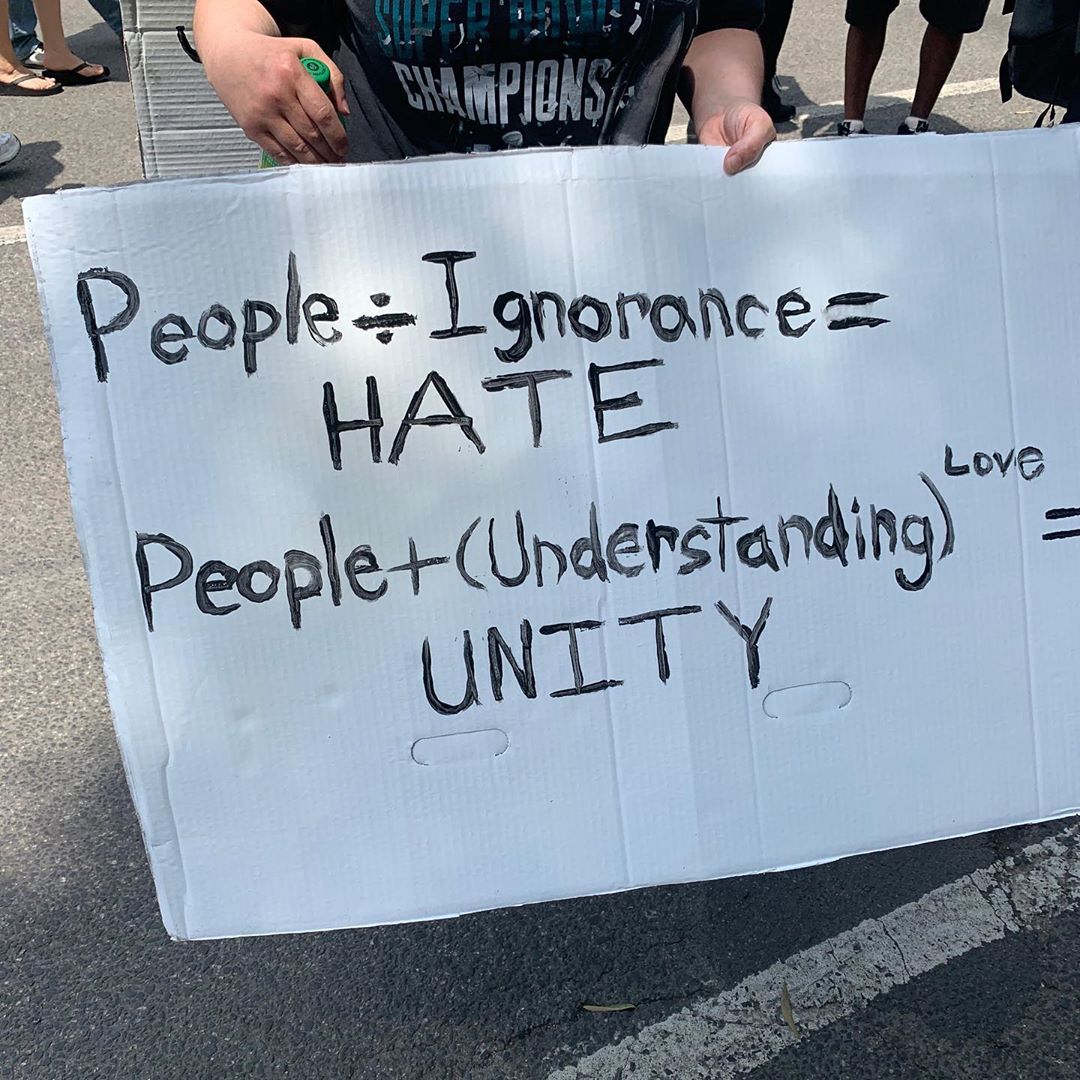 SUPER BOWL
CHAMPIONS
People ÷ Ignorance =
HATE
People + (Understanding)^Love =
UNITY